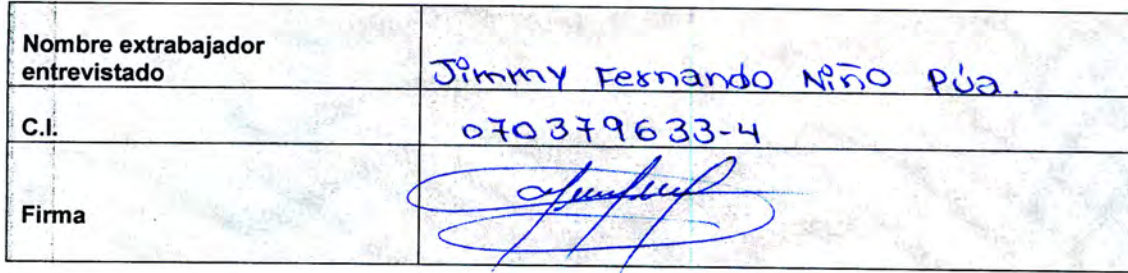 Nombre extrabajador
entrevistado
Jimmy Fernando Niño Púa.
C.I.
070379633-4
Firma